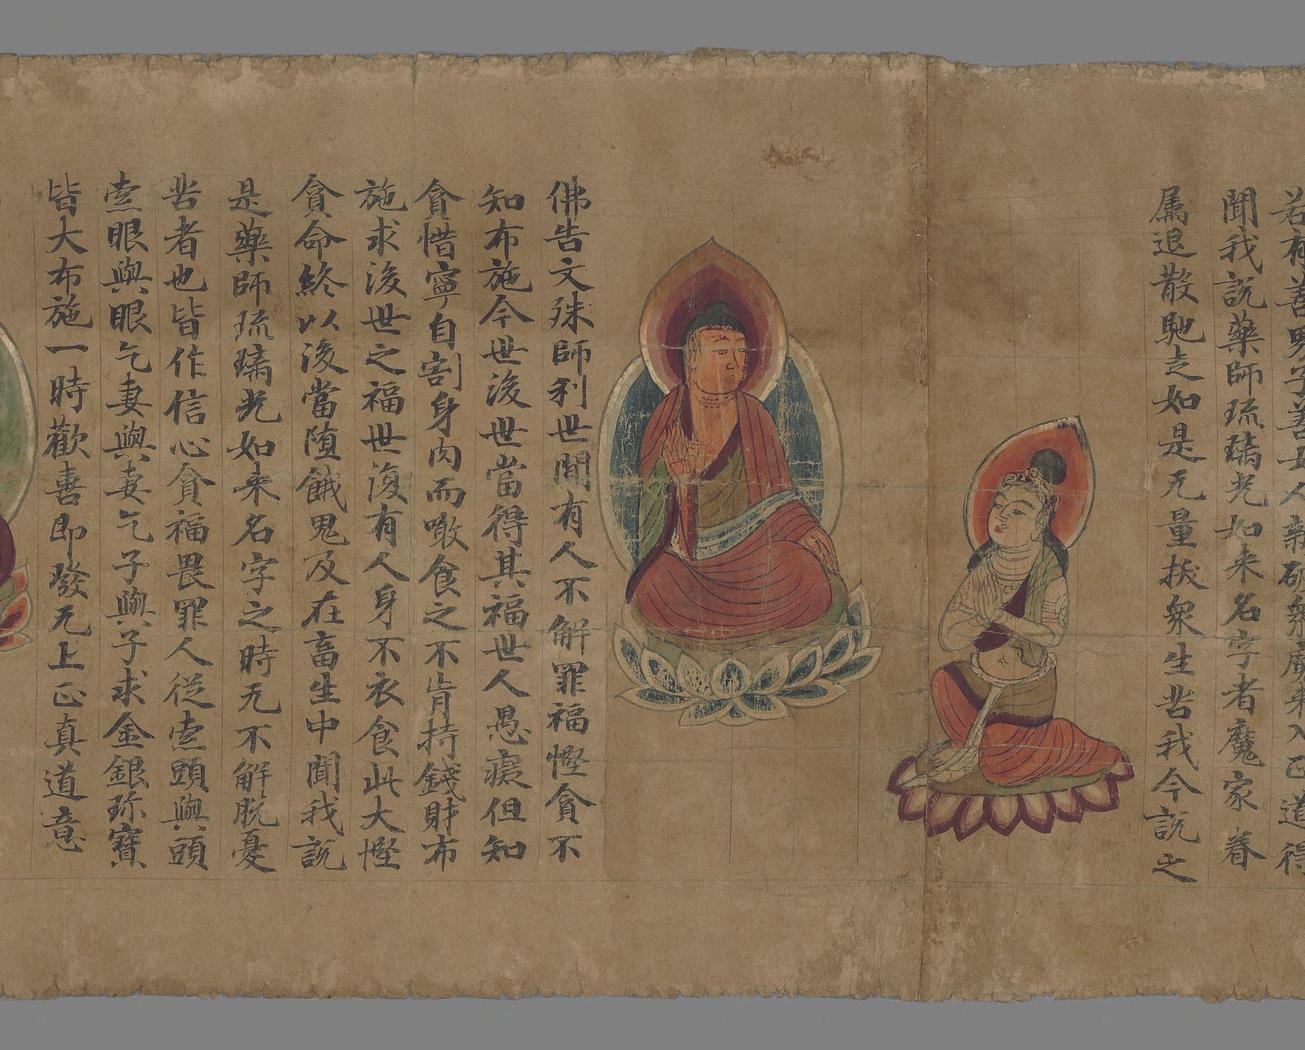 若有善男子善女人新破衆魔來入正道得
聞我說藥師琉璃光如来名字者魔家眷
属退散馳走如是无量扷衆生苦我今說之
佛告文殊師利世間有人不解罪福慳貪不
知布施今世後世當得其福世人愚癡但知
貪惜寧自割身肉而噉食之不肯持錢財布
施求後世之福世復有人身不衣食此大慳
貪命終以後當堕餓鬼及在畜生中聞我說
是藥師琉璃光如来名字之時无不解脱憂
苦者也皆作信心貪福畏罪人從索頭與頭
索眼與眼乞妻與妻乞子與子求金銀珎寶
皆大布施一時歡喜即發无上正真道意